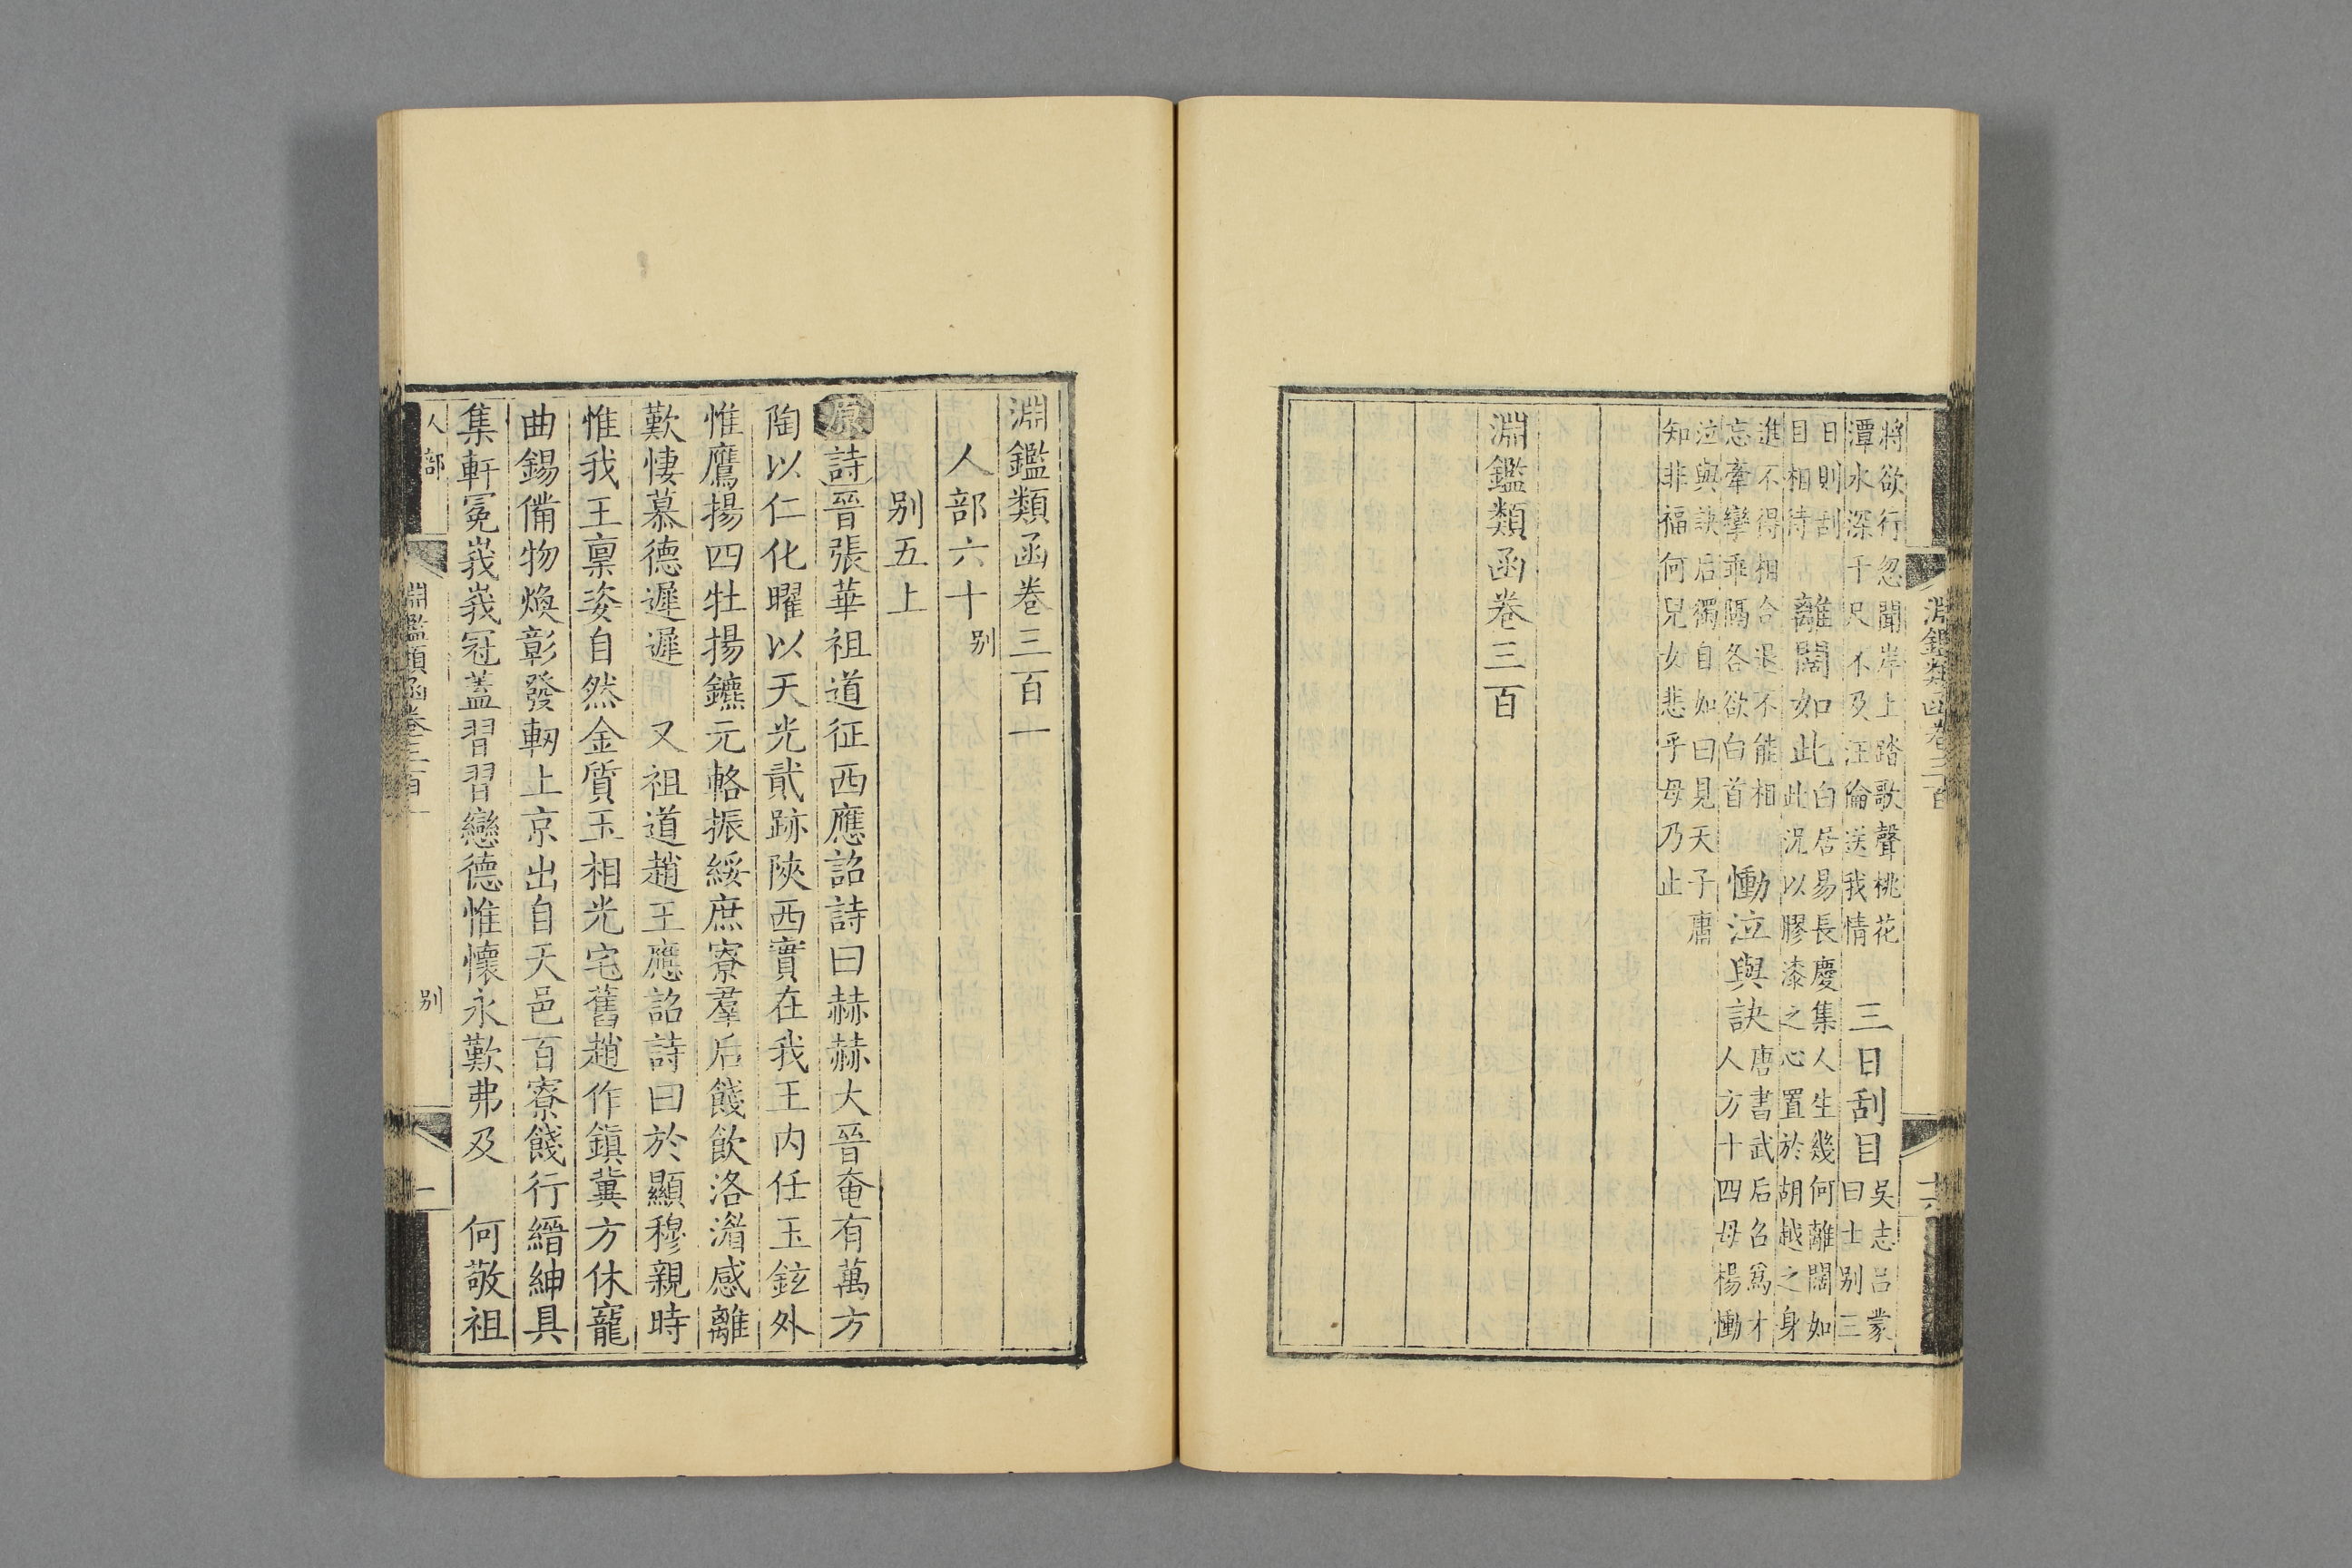 淵鑑類函卷三百
十六
將欲行忽聞岸上踏歌聲桃花
潭水深千尺不及汪倫送我情
三日刮目
吳志呂蒙
曰士别三
日則刮
目相待
離闊如此
白居易長慶集人生幾何離闊如
此況以膠漆之心置於胡越之身
進不得相合退不能相
忘牽攣乖隔各欲白首
慟泣與訣
唐書武后召爲才
人方十四母楊慟
泣與訣后獨自如曰見天子庸
知非福何兒女悲乎母乃止
淵鑑類函卷三百
淵鑑類函卷三百一
人部六十别
别五上
原詩晉張華祖道征西應詔詩曰赫赫大晉奄有萬方
陶以仁化曜以天光貳跡陝西實在我王內任玉鉉外
惟鷹揚四牡揚鑣元輅振綏庶寮羣后餞飲洛湄感離
歎悽慕德遲遲 又祖道趙王應詔詩曰於顯穆親時
惟我王稟姿自然金質玉相光宅舊趙作鎮冀方休寵
曲錫備物煥彰發軔上京出自天邑百寮餞行縉紳具
集軒冕峩峩冠蓋習習戀德惟懷永歎弗及 何敬祖
人部
淵鑑類函卷三百一
别
一